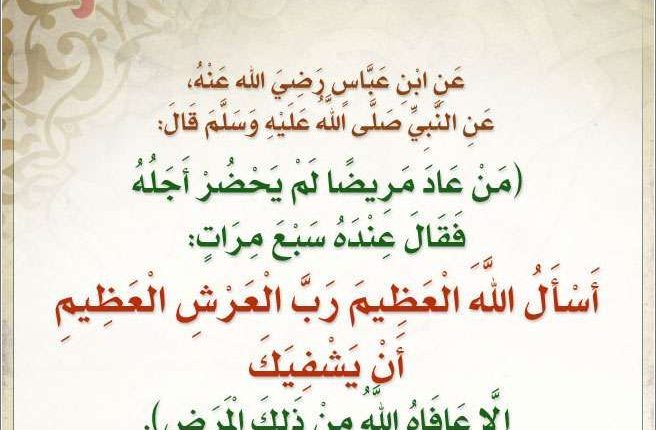 عَنِ ابْنِ عَبَّاسٍ رَضِيَ الله عَنْهُ،
عَنِ النَّبِيِّ صَلَّى اللَّهُ عَلَيْهِ وَسَلَّمَ قَالَ:
(مَنْ عَادَ مَرِيضًا لَمْ يَحْضُرْ أَجَلُهُ
فَقَالَ عِنْدَهُ سَبْعَ مِرَاتٍ:
أَسْأَلُ اللَّهَ الْعَظِيمَ رَبَّ الْعَرْشِ الْعَظِيمِ
أَنْ يَشْفِيَكَ
إِلَّا عَافَاهُ اللَّهُ مِنْ ذَلِكَ الْمَرَضِ).